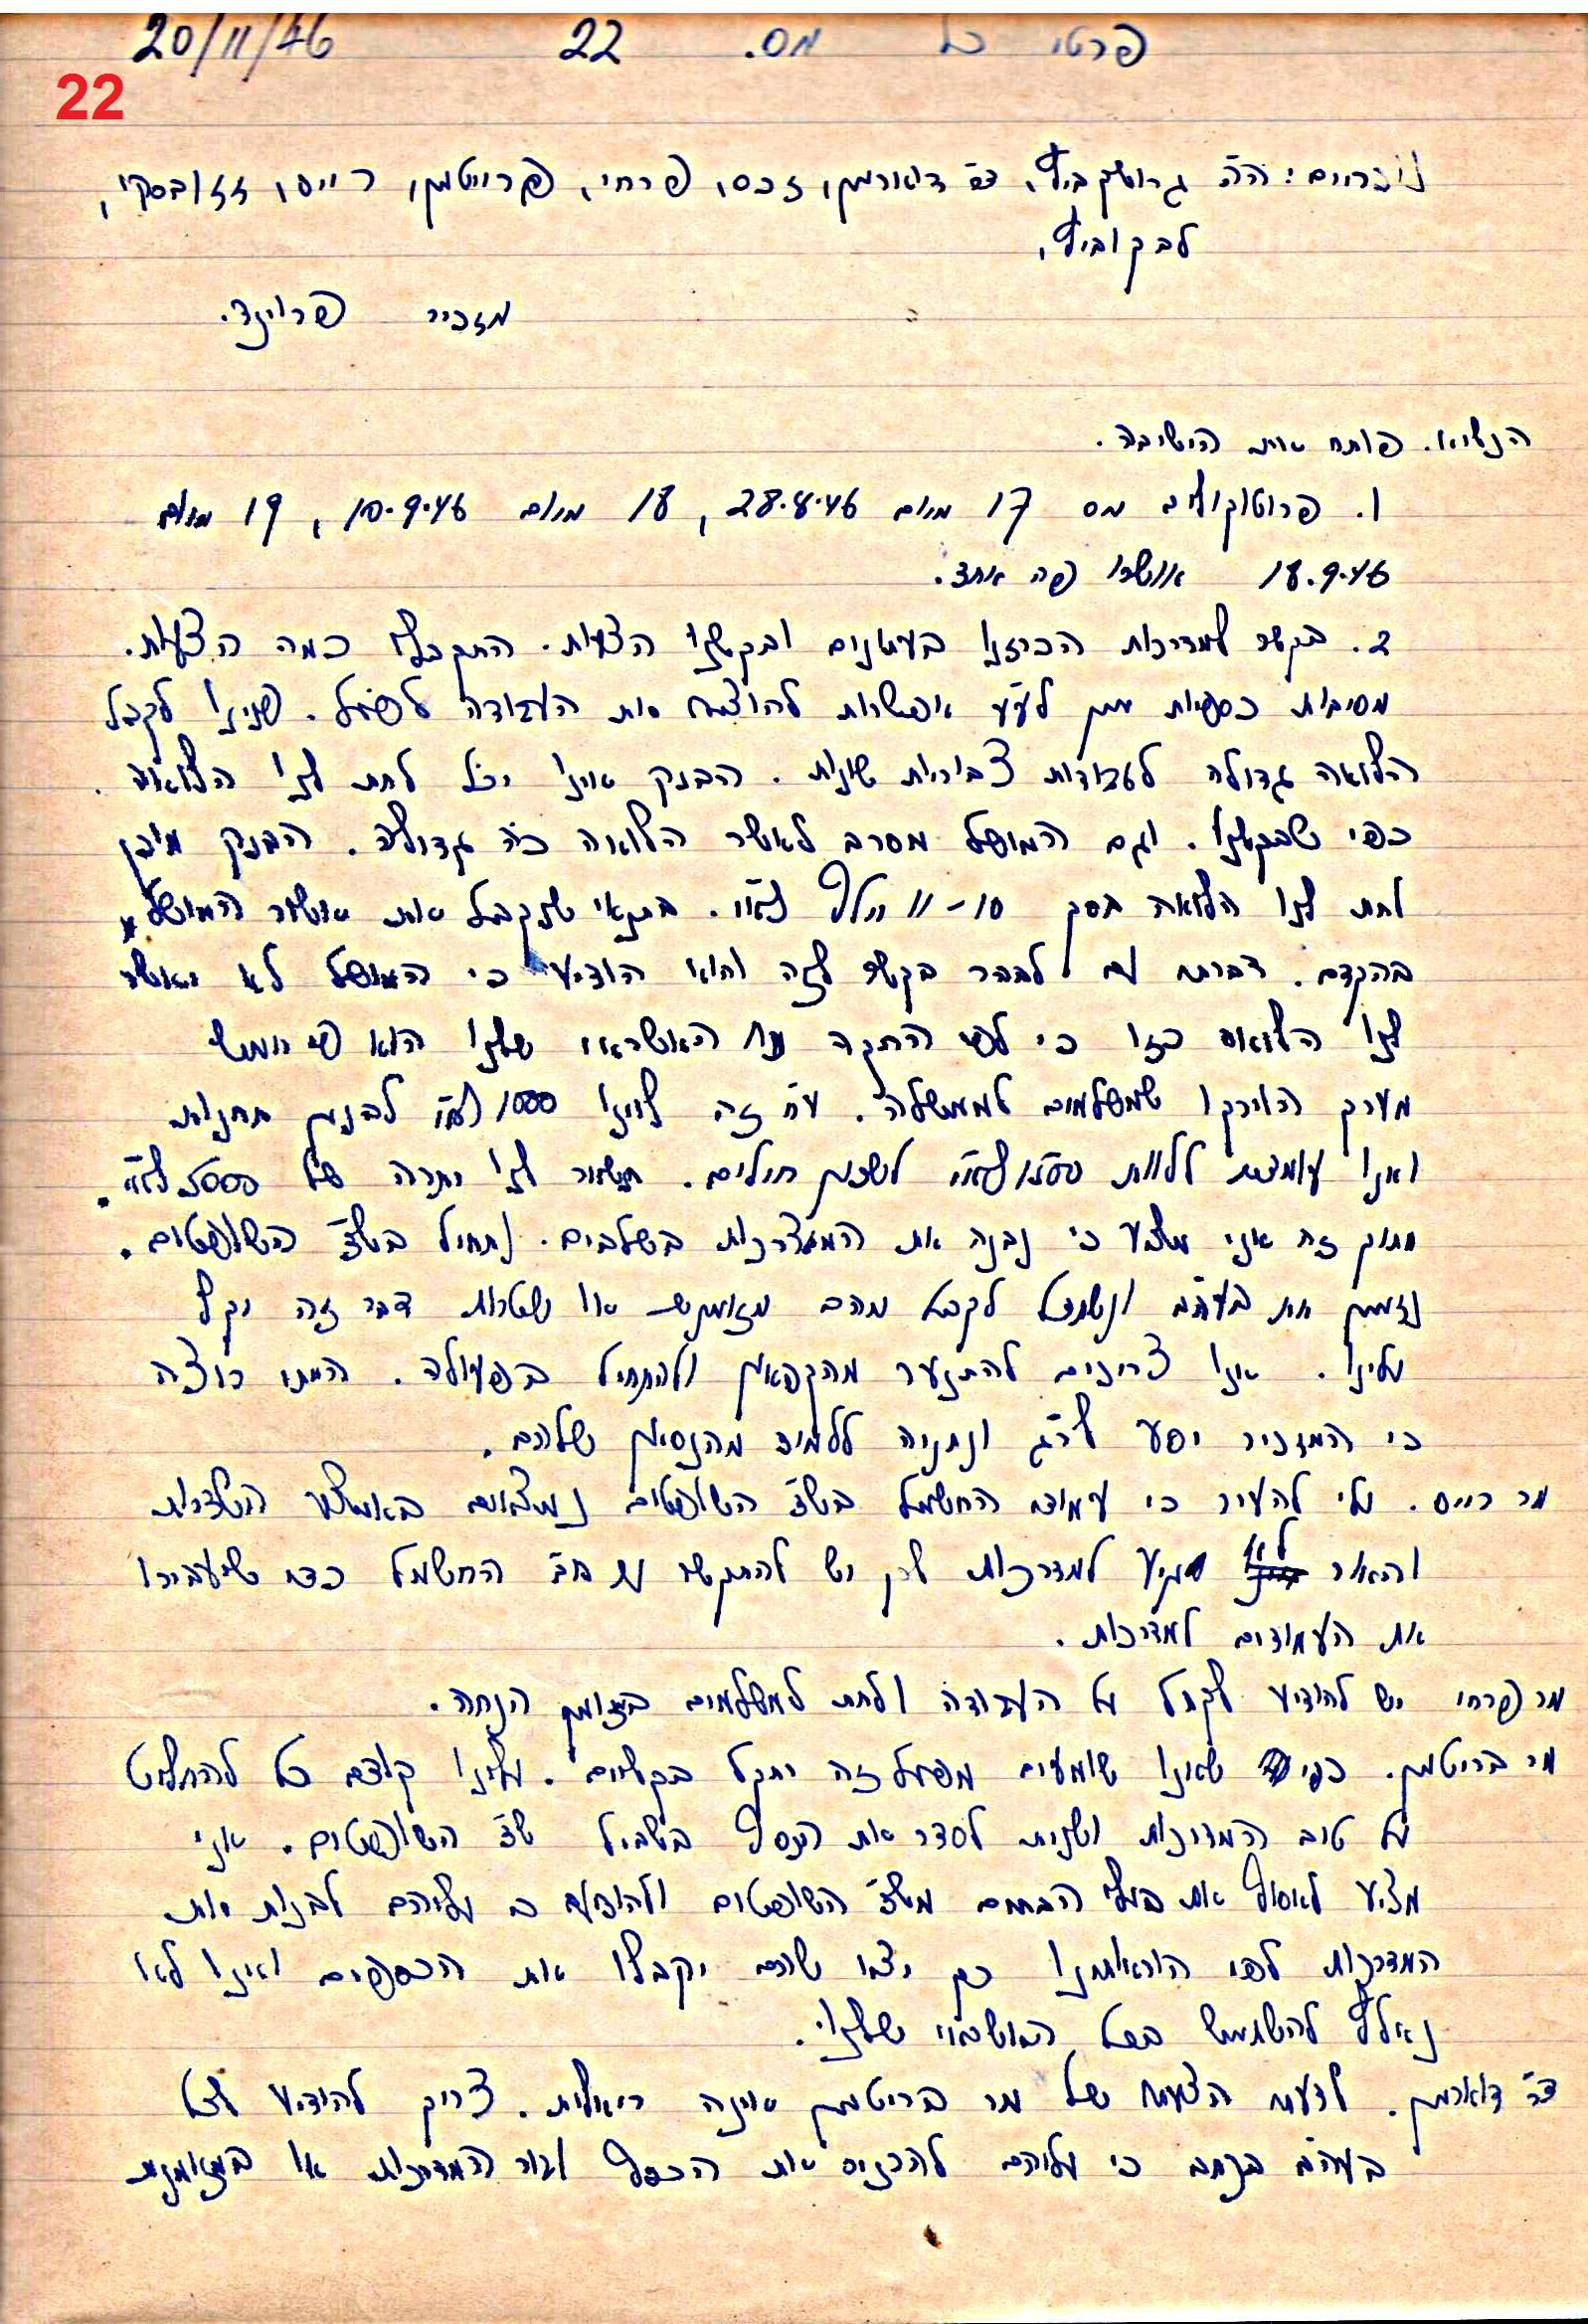 פרטי כל מס. 22 20/11/46
22
נוכחים: ה"ה גרושקביץ, ד"ר דוארמן, זכס, פרחי, ברייטמן, רייס, זזובסקי,
לבקוביץ,
מזכיר פרוינד.
הנשיא. פותח את הישיבה.
1. פרוטוקולים מס 17 מיום 28.8.46, 18 מיום 10.9.46, 19 מיום
18.9.46 אושרו פה אחד.
2. בקשר למדרכות הכרזנו בעתונים ובקשנו הצעות. התקבלו כמה הצעות.
מסיבות כספיות אין לע"ע אפשרות להוציא את העבודה לפועל. פנינו לקבל
הלואה גדולה לעבודות צבוריות שונות. הבנק אינו יכול לתת לנו הלואה
כפי שבקשנו. וגם המושל מסרב לאשר הלואה כ"כ גדולה. הבנק מוכן
לתת לנו הלואה בסך 10-11 אלף לא"י. בתנאי שנקבל את אשור המושל
בהקדם. דברתי עם לבבר בקשר לזה והוא הודיע כי המושל לא יאשר
לנו הלואה כזו כי לפי החוקה האשראי שלנו הוא
מערך הוירקו שמשלמים לממשלה. ע"ח זה לוינו 1000 לא"י לבנין תחנות
ואנו עומדים ללוות 1500 לא"י לשכון חילים. תשאר לנו יתרה של 5000 לא"י.
מתוך זה אני מציע כי נבנה את המדרכות בשלבים. נתחיל בשד' השופטים.
נזמין את בעה"ב ונשתדל לקבל מהם מזומנים או שטרות דבר זה יקל
עלינו. אנו צריכים להתנער מהקפאון ולהתחיל בפעולה. הייתי רוצה
כי המזכיר יסע לר"ג ונתניה ללמוד מהנסיון שלהם.
מר רייס. עלי להעיר כי עמודי החשמל בשד' השופטים נמצאים באמצע השדרות
והאור לא מגיע למדרכות לכן יש להתקשר עם חב' החשמל כדי שיעבירו
את העמודים למדרכות.
מר פרחי יש להודיע לקהל על העבודה ולתת למשלמים במזומן הנחה.
מר בריטמן. כפי שאנו שומעים מפעל זה יתקל בקשיים. עלינו קודם כל להחליט
על טוב המדרכות ושנית לסדר את הכסף בשביל שד' השופטים. אני
מציע לאסוף את בעלי הבתים משד' השופטים ולהודיע כי עליהם לבנות את
המדרכות לפי הוראותינו כך יצא שהם יקבלו את הכספים ואנו לא
נאלץ להשתמש בכל האשראי שלנו.
ד"ר דוארמן. לדעתי הצעתו של מר בריטמן אינה ריאלית. צריך להודיע לכל
בעה"ב בכתב כי עליהם להכניס את הכסף עבור המדרכות או במזומנים